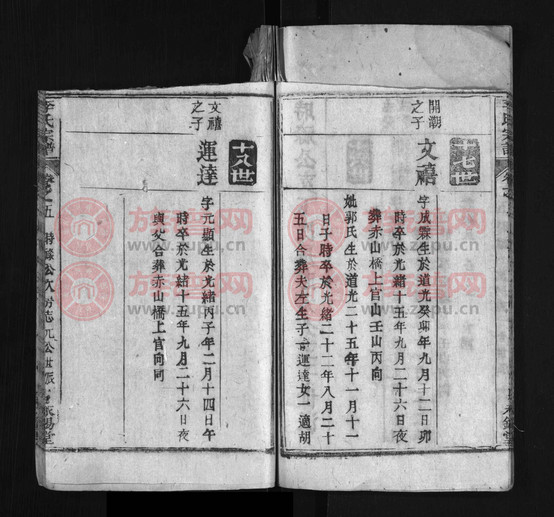 十七世
開湖之子
文禧
字成霖生於道光癸卯年九月十二日卯
時卒於光緒十五年九月二十六日夜
葬赤山橋上官山壬山丙向
妣郭氏生於道光二十五年十一月十一
日子時卒於光緒二十二年八月二十
五日合葬夫左生子一運達女一適胡
十八世
文禧之子
運達
字元顯生於光緒丙子年二月十四日午
時卒於光緒十五年九月二十六日夜
與父合葬赤山橋上官向同
李氏宗譜
卷之五
公世派
方志譜圖網
www.zupu.cn